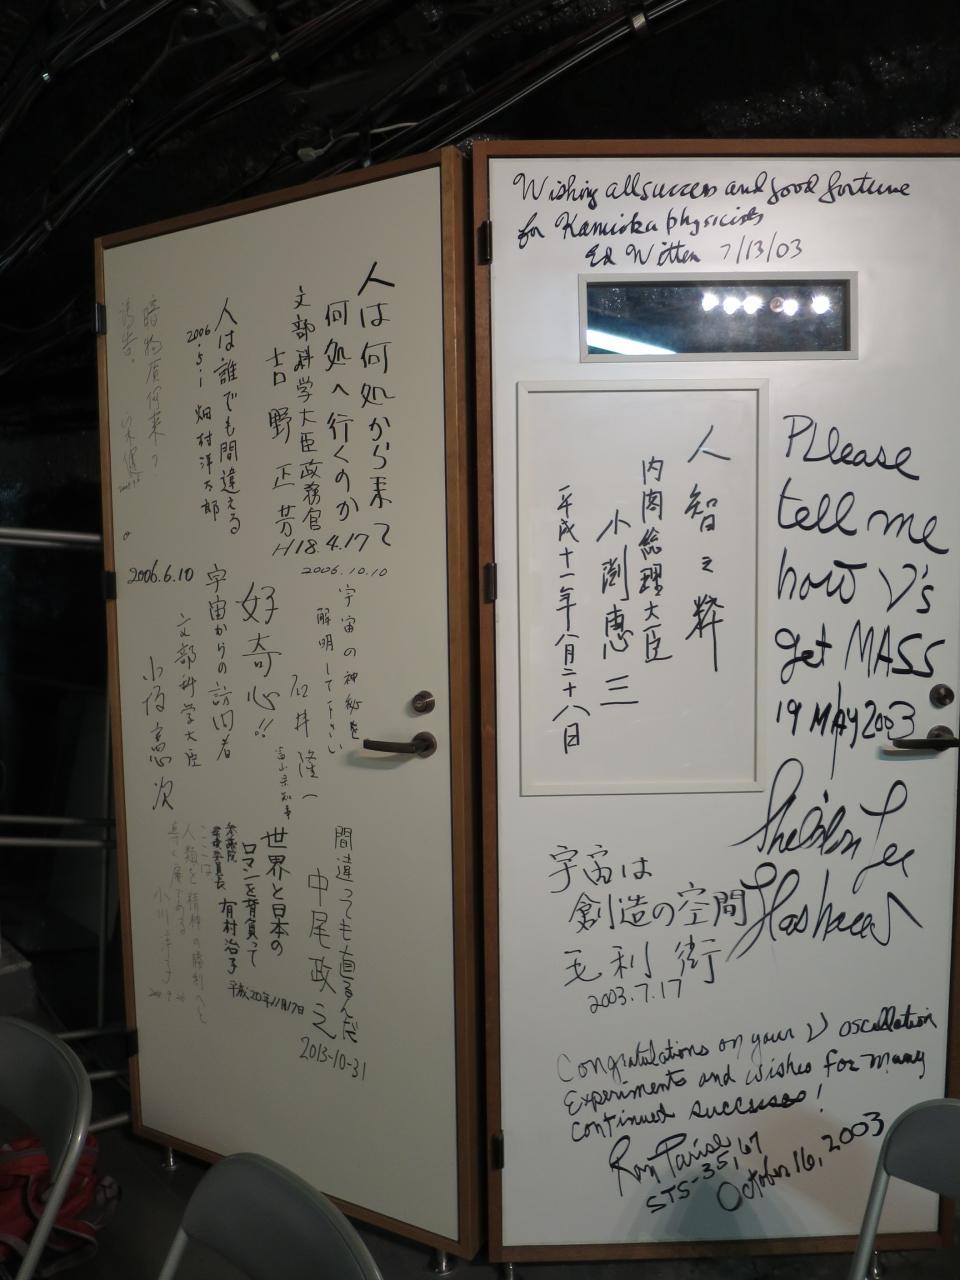 Wishing all success and good fortune
for Kamioka physicists
Ed Witten 7/13/03
人智之粋
内閣総理大臣
小渕恵三
平成十一年八月二十八日
PLease
tell me
how ν's
get MASS
19 MAY 2003
Sheldon Lee
Glashow
宇宙は
創造の空間
毛利衛
2003.7.17
Congratulations on your ν oscillation
Experiments and wishes for many
continued successes!
Ron Parise
STS-35, 67
October 16, 2003
人は何処から来て
何処へ行くのか
文部科学大臣政務官
吉野正芳
H18.4.17
人は誰でも間違える
2006.5.1 畑村洋太郎
暗物質何来?
2006.10.10
宇宙の神秘を
解明して下さい
石井隆一
富山県知事
2006.6.10
好奇心!!
宇宙からの訪問者
文部科学大臣
小坂憲次
間違っても直るんだ
中尾政之
2013-10-31
世界と日本の
ロマンを背負って
参議院
有村治子
平成20年11月17日
ここは
人類を精神の勝利へと
導く扉である
小川洋子